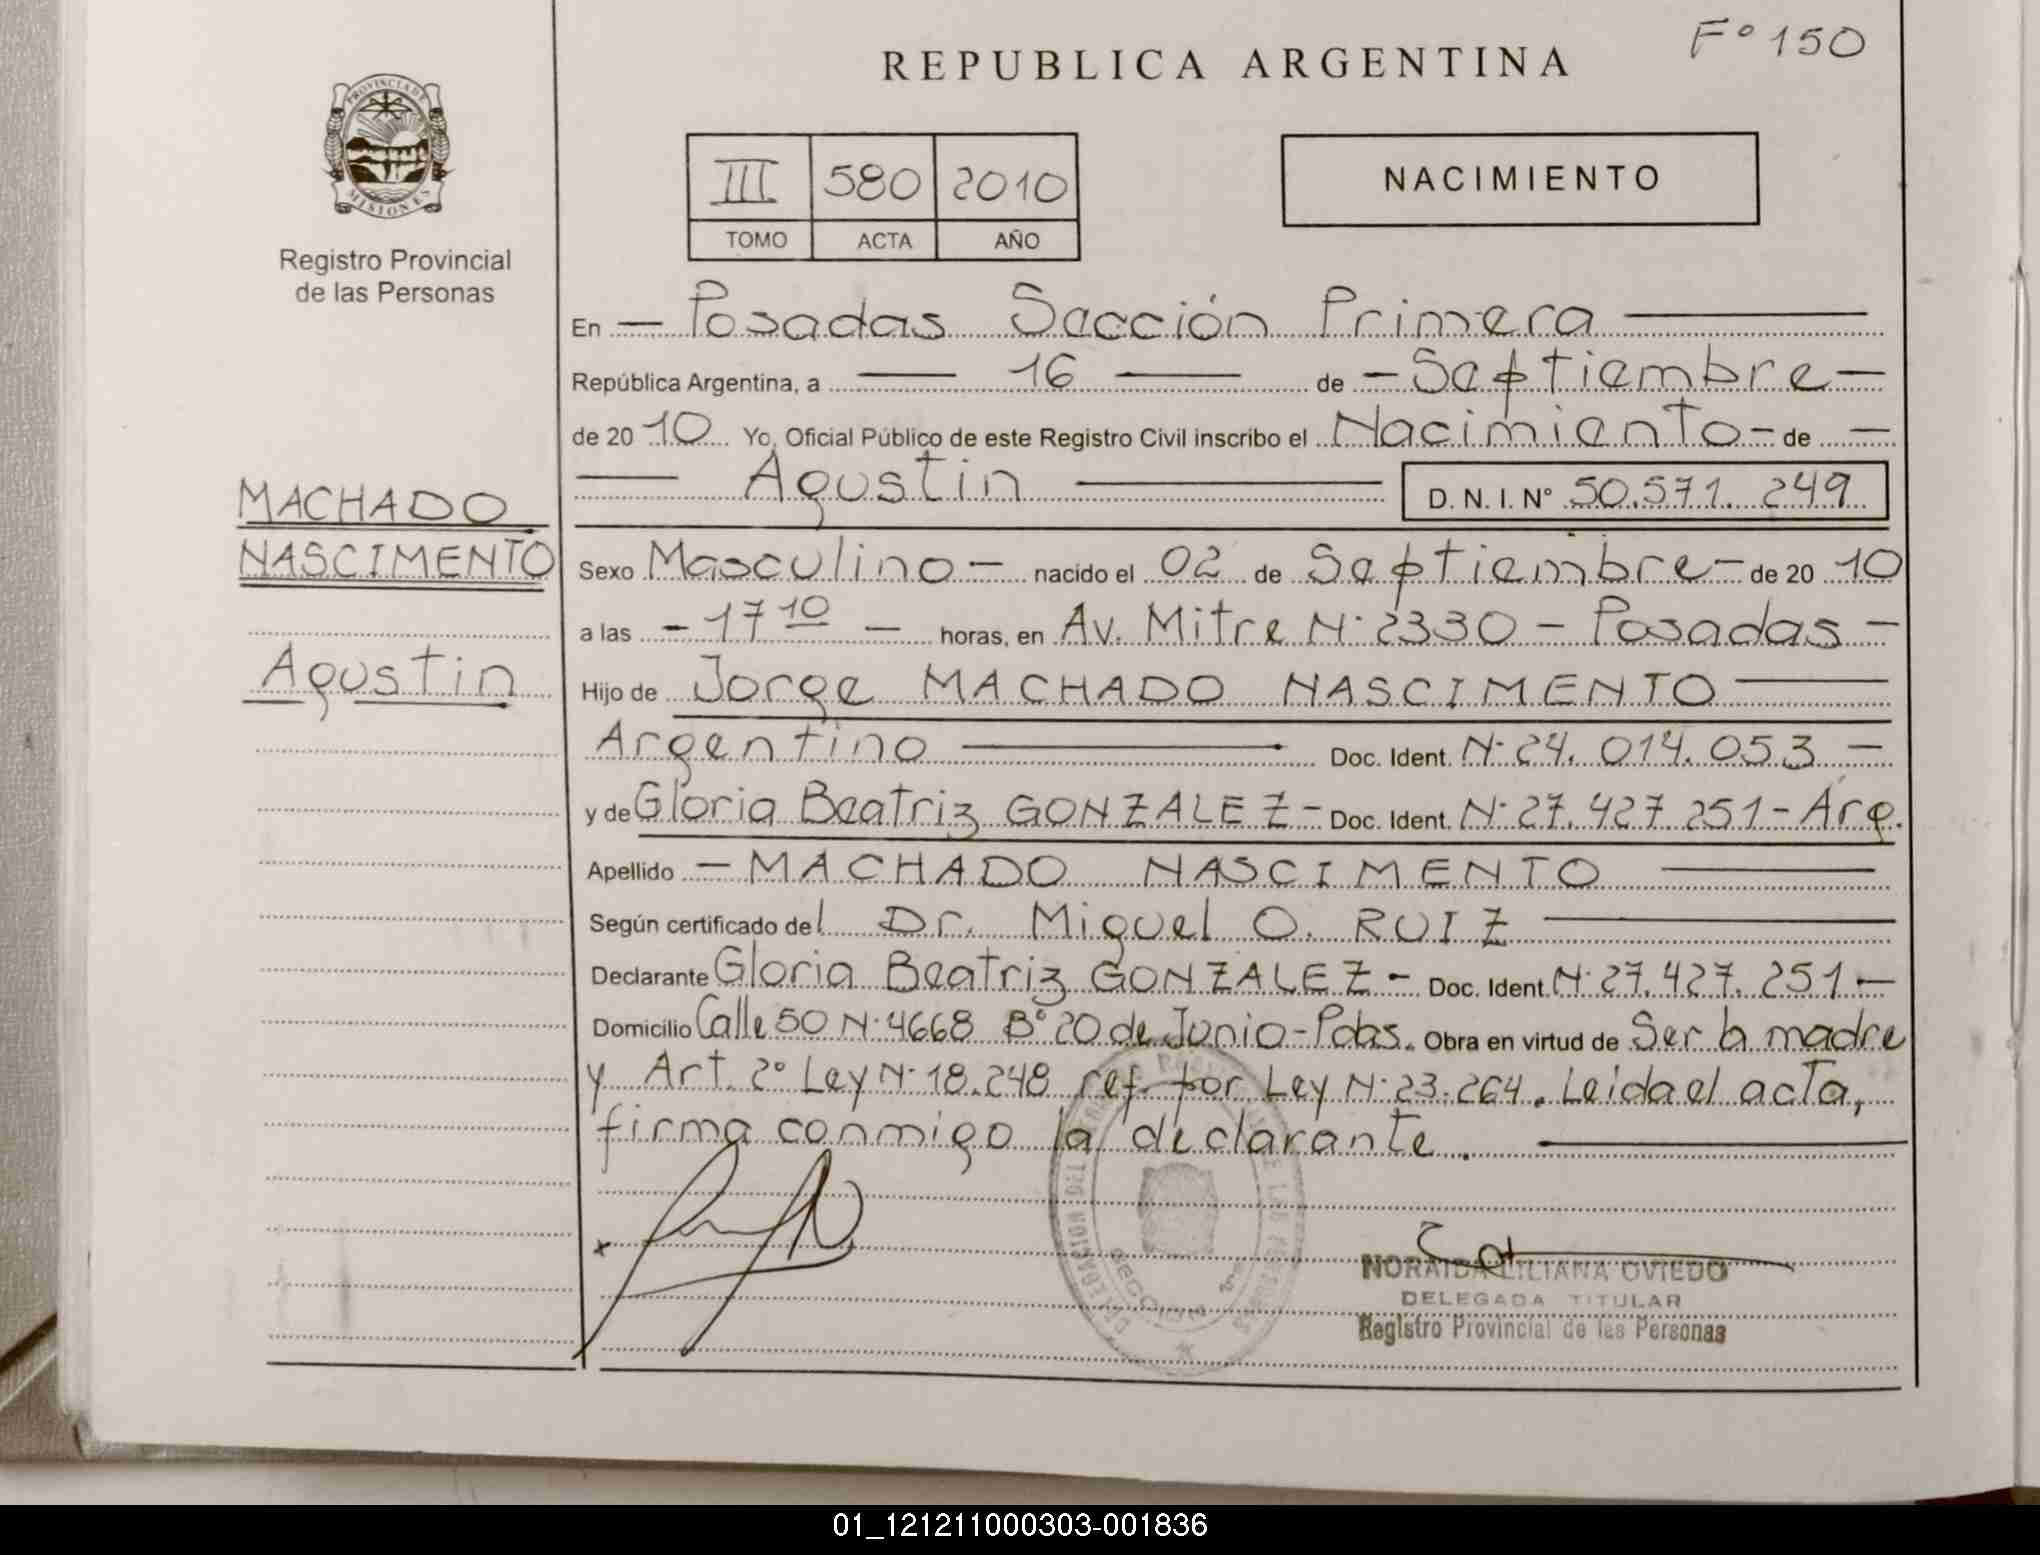 F° 150
REPUBLICA ARGENTINA
PROVINCIA DE
MISIONES
Registro Provincial
de las Personas
III 580 2010
TOMO ACTA AÑO
NACIMIENTO
En — Posadas Sección Primera —
República Argentina, a — 16 — de — Septiembre —
de 20 10 Yo, Oficial Público de este Registro Civil inscribo el Nacimiento - de —
— Agustin — D. N. I. N° 50.571.249
MACHADO
NASCIMENTO
Agustin
Sexo Masculino — nacido el 02 de Septiembre — de 20 10
a las - 17 10 — horas, en Av. Mitre N° 2330 - Posadas —
Hijo de Jorge MACHADO NASCIMENTO —
Argentino — Doc. Ident. N° 24.014.053 —
y de Gloria Beatriz GONZALEZ - Doc. Ident. N° 27.427.251 - Arg.
Apellido — MACHADO NASCIMENTO —
Según certificado del Dr. Miguel O. RUIZ —
Declarante Gloria Beatriz GONZALEZ - Doc. Ident. N° 27.427.251 —
Domicilio Calle 50 N° 4668 B° 20 de Junio - Pdas. Obra en virtud de Ser la madre
y Art. 2° Ley N° 18.248 ref. por Ley N° 23.264. Leida el acta,
firma conmigo la declarante. —
x
NORAIDA LILIANA OVIEDO
DELEGADA TITULAR
Registro Provincial de las Personas
01_121211000303-001836